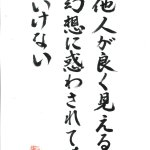 他人が良く見える
幻想に惑わされては
いけない